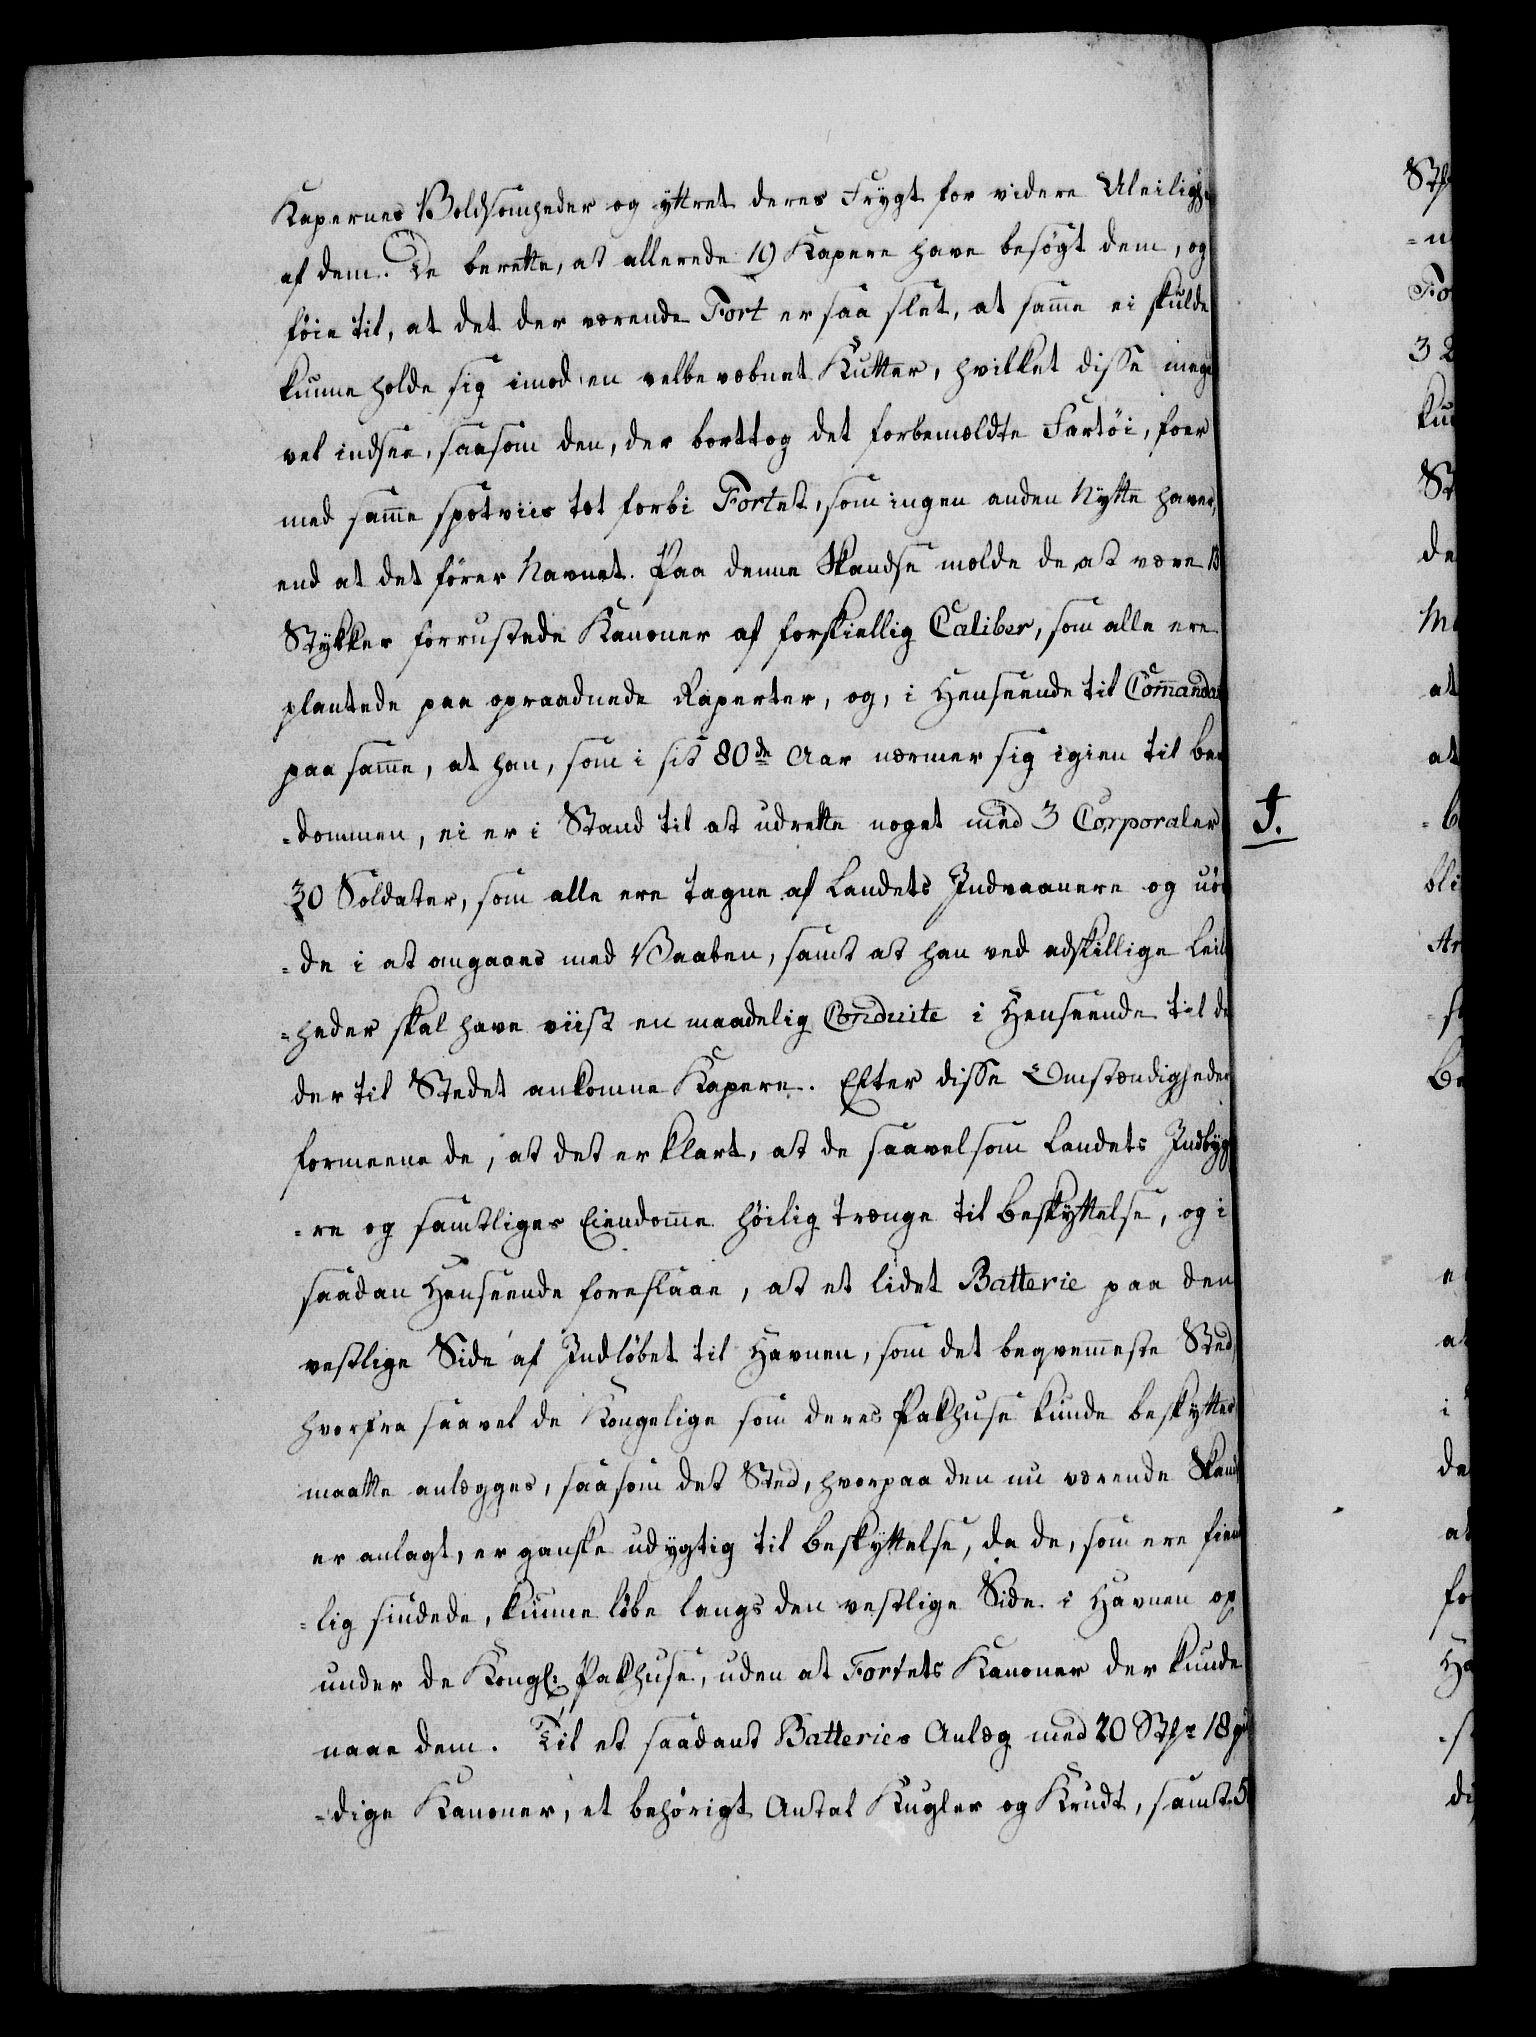 Kapernes Voldsomheder og yttret deres Frygt for videre Uleilighe
af dem. De berette, at allerede 10 Kapere have besøgt dem, og
føie til, at det der værende Fort er saa slet, at samme ei skulde
kunne holde sig imod en velbevæbnet Kutter, hvilket disse meget
vel indsee, saasom den, der borttog det forbemældte Fartøi, foer
med samme spotviis tæt forbi Fortet, som ingen anden Nytte haver,
end at det fører Navnet. Paa denne Skandse mælde de, at være 13
Stykker forrustede Kanoner af forskiellig Caliber, som alle ere
plantede paa opraadnede Raperter, og, i Henseende til Commandan
paa samme, at han, som i sit 80de Aar nærmer sig igien til bar
-dommen, ei er i Stand til at udrette noget med 3 Corporaler
30 Soldater, som alle ere tagne af Landets Indvaanere og uøv
-de i at omgaaes med Vaaben, samt at han ved adskillige Leili
-heder skal have viist en maadelig Conduite i Henseende til de
der til Stedet ankomne Kapere. Efter disse Omstændigheder
formeene de, at det er klart, at de saavelsom Landets Indbyg
-re og samtliges Eiendomme høilig trænge til Beskyttelse, og i
saadan Henseende foreslaae, at et lidet Batterie paa den
vestlige Side af Indløbet til Havnen, som det beqvemmeste Sted,
hvorfra saavel de Kongelige som deres Pakhuse kunde beskyttes
maatte anlægges, saasom det Sted, hvorpaa den nu værende Skand
er anlagt, er ganske udygtig til Beskyttelse, da de, som ere fiend
-lig sindede, kunne løbe langs den vestlige Side i Havnen op
under de Kongl: Pakhuse, uden at Fortets Kanoner der kunde
naae dem. Til et saadant Batteries Anlæg med 20 Stkr 18 p
-dige Kanoner, et behørigt Antal Kugler og Krudt, samt 5
J.